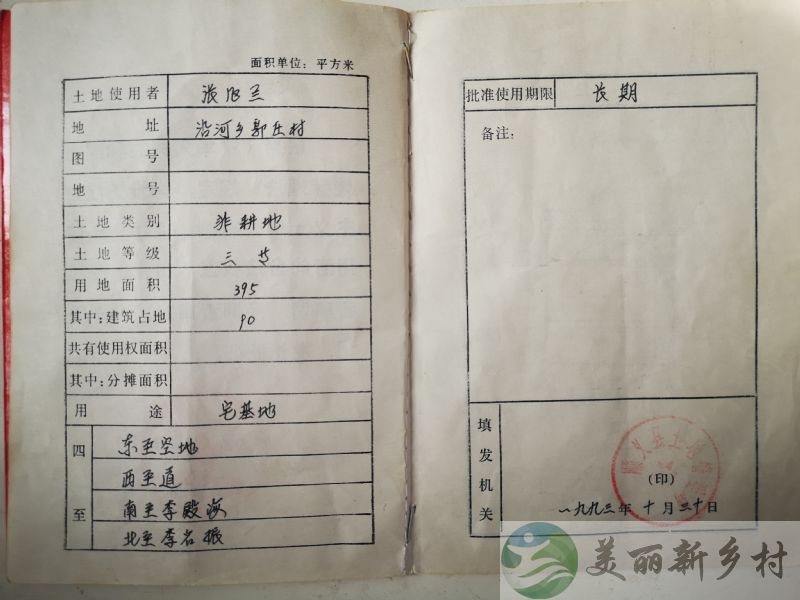 面积单位：平方米
土地使用者
地址 沿河乡郭庄村
图号
地号
土地类别 非耕地
土地等级 三节
用地面积 395
其中：建筑占地 90
共有使用权面积
其中：分摊面积
用途 宅基地
四至 东至空地
西至道
南至李殿海
北至李名振
批准使用期限 长期
备注：
填发机关 (印)
一九九三年十月三十日
美丽新乡村